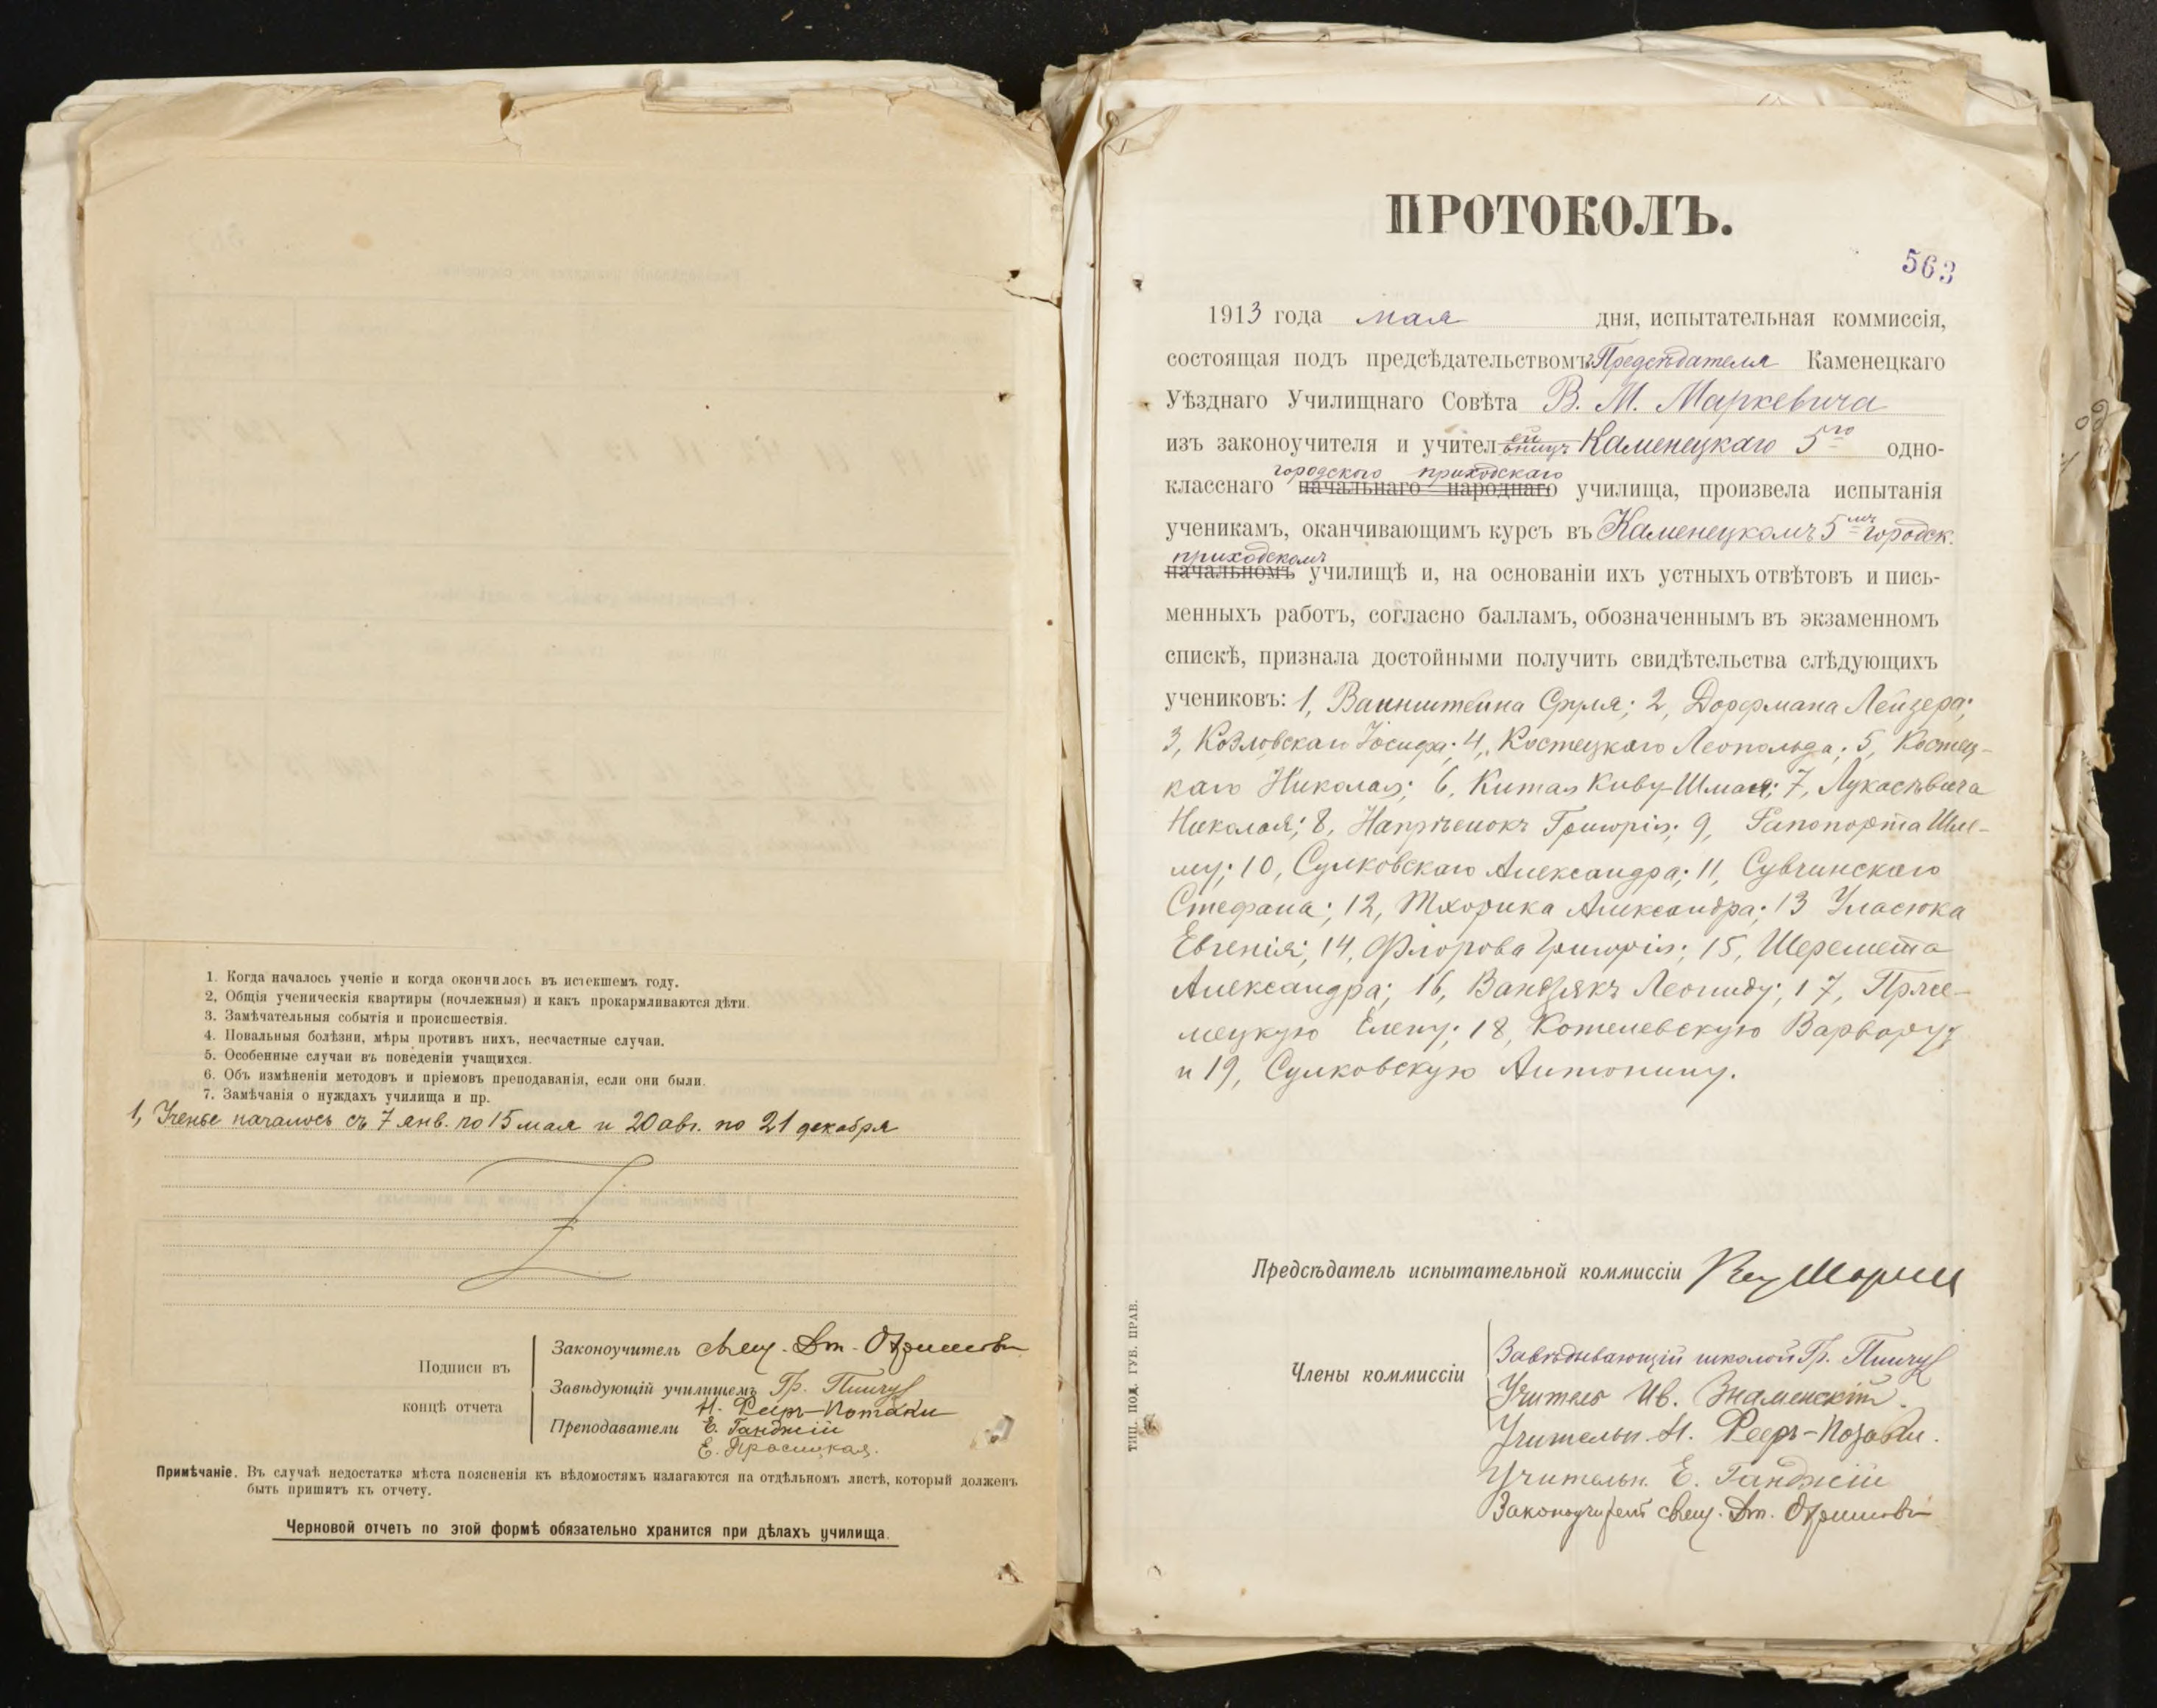 1. Когда началось ученіе и когда окончилось въ истекшемъ году.
2. Общія ученическія квартиры (ночлежныя) и какъ прокармливаются дѣти.
3. Замѣчательныя событія и происшествія.
4. Повальныя болѣзни, мѣры противъ нихъ, несчастные случаи.
5. Особенные случаи въ поведеніи учащихся.
6. Объ измѣненіи методовъ и пріемовъ преподаванія, если они были.
7. Замѣчанія о нуждахъ училища и пр.
1, Ученье началось съ 7 янв. по 15 мая и 20 авг. по 21 декабря
Подписи въ концѣ отчета
Законоучитель свящ. Дм.
Завѣдующій училищемъ Гр.
Н.
Преподаватели Е. Ганджій
Е.
Примѣчаніе. Въ случаѣ недостатка мѣста поясненія къ вѣдомостямъ излагаются на отдѣльномъ листѣ, который долженъ
быть пришитъ къ отчету.
Черновой отчетъ по этой формѣ обязательно хранится при дѣлахъ училища.
ПРОТОКОЛЪ.
563
1913 года мая дня, испытательная коммиссія,
состоящая подъ предсѣдательствомъ Предсѣдателя Каменецкаго
Уѣзднаго Училищнаго Совѣта В. М. Маркевича
изъ законоучителя и учителей Каменецкаго 5го одно-
городского приходскаго
класснаго начальнаго народнаго училища, произвела испытанія
ученикамъ, оканчивающимъ курсъ въ Каменецкомъ 5мъ городск.
приходскомъ
начальномъ училищѣ и, на основаніи ихъ устныхъ отвѣтовъ и пись-
менныхъ работъ, согласно балламъ, обозначеннымъ въ экзаменномъ
спискѣ, признала достойными получить свидѣтельства слѣдующихъ
учениковъ: 1, Ваинштейна Сруля; 2, Дорфмана Лейзера;
3, Козловскаго Іосифа; 4, Костецкаго Леопольда; 5, Костец-
каго Николая; 6, Китая Киву-Шмая; 7, Лукасѣвича
Николая; 8, Григорія; 9, Рапопорта Шле-
му; 10, Сулковскаго Александра; 11, Сувчинскаго
Стефана; 12, Тхорика Александра; 13 Уласюка
Евгенія; 14, Флорова Григорія; 15, Шеремета
Александра; 16, Вандзякъ Леониду; 17,
мецкую Елену; 18, Котелевскую Варвару;
и 19, Сулковскую Антонину.
Предсѣдатель испытательной коммиссіи
Члены коммиссіи
Завѣдывающій школой Гр.
Учитель Ив. Знаменскій.
Учительн. Н.
Учительн. Е. Ганджій
Законоучитель свящ. Дм.
ТИП. ПОД. ГУБ. ПРАВ.